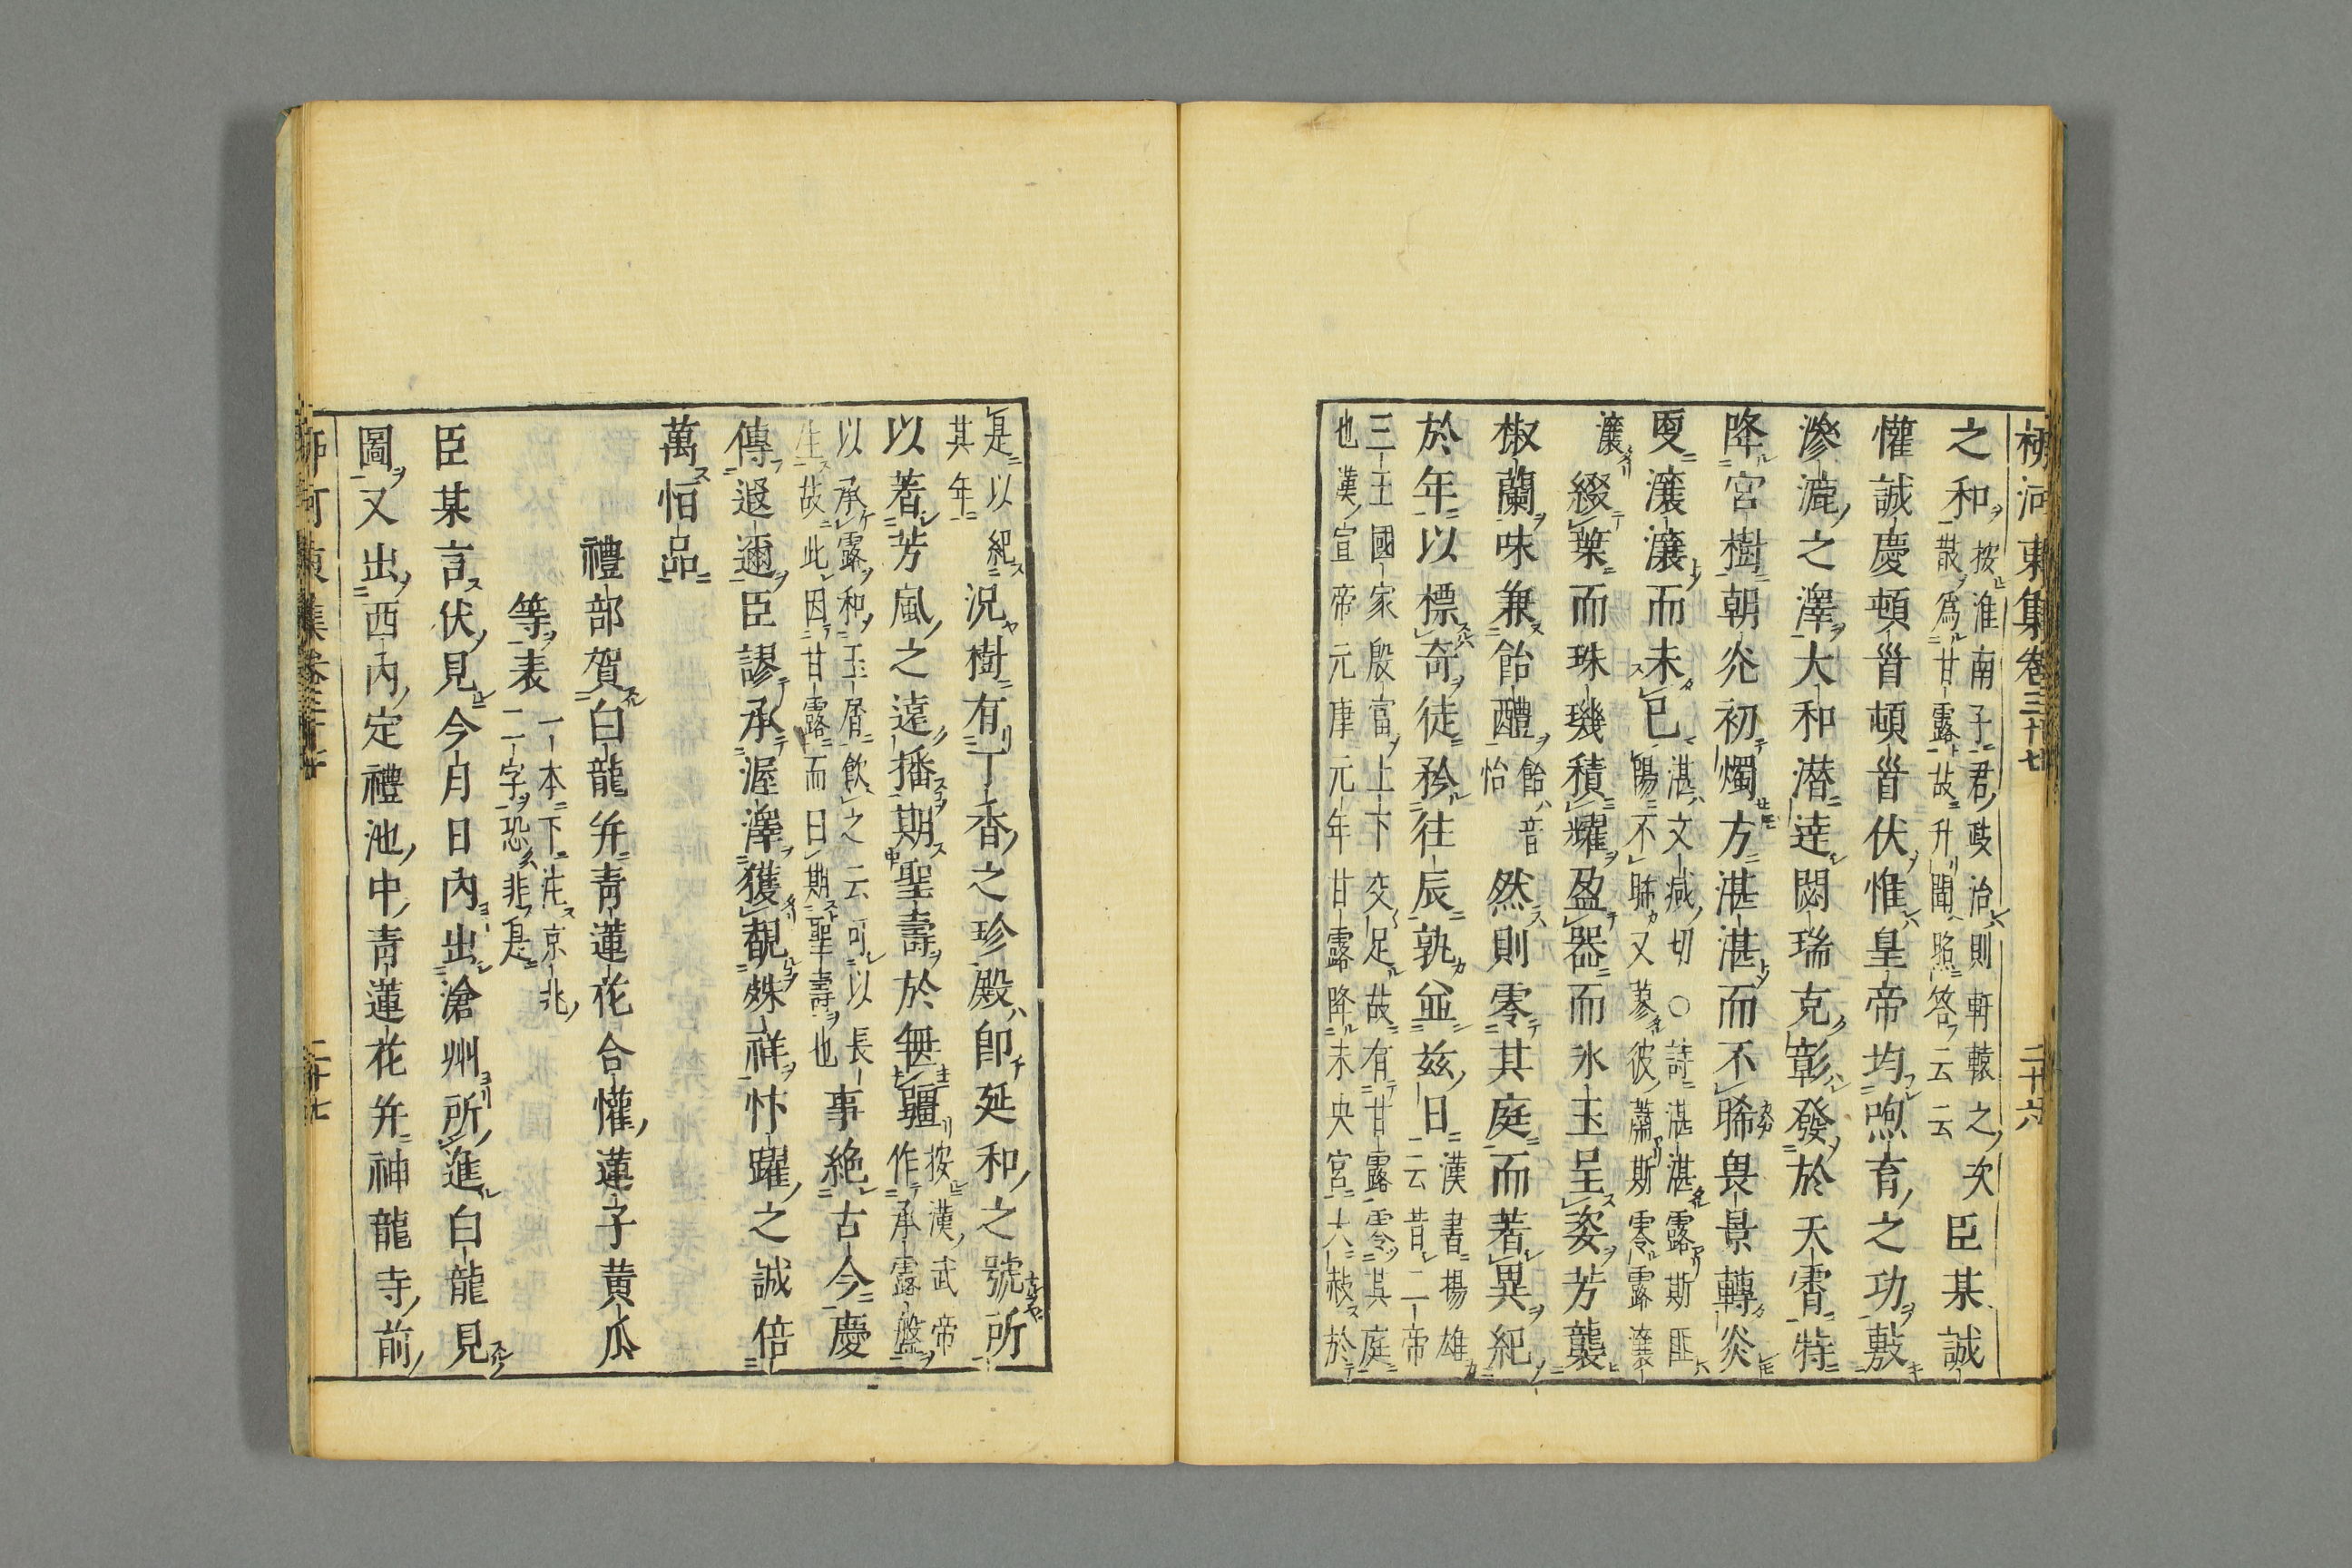 柳河東集卷三十七　二十六
之和按淮南子君政治則軒轅之次
散爲甘露故升聞照答云云臣某誠
懽誠慶頓首頓首伏惟皇帝均煦育之功敷
滲漉之澤大和潜達閟瑞克彰發於天霄特
降宮樹朝光初燭方湛湛而不晞畏景轉炎
更瀼瀼而未已湛文减切○詩湛湛露斯匪
陽不晞又蓼彼蕭斯零露瀼
瀼綴葉而珠璣積耀盈器而氷玉呈姿芳襲
椒蘭味兼飴醴飴音
怡然則零其庭而著異紀
於年以標奇徒矜往辰孰並玆日漢書楊雄
二云昔二帝
三王國家殷富上下交足故有甘露零其庭
也漢宣帝元康元年甘露降未央宮大赦於
是以紀
其年況樹有丁香之珍殿卽延和之號所
以著芳風之遠播期聖壽於無疆按漢武帝
作承露盤
以承露和玉屑飲之云可以長
生故此因甘露而曰期聖壽也事絶古今慶
傳遐邇臣謬承渥澤獲覩殊祥忭躍之誠倍
萬恒品
禮部賀白龍并青蓮花合懽蓮子黄瓜
等表一本下注京兆
二字恐非是
臣某言伏見今月日内出滄州所進白龍見
圖又出西内定禮池中青蓮花并神龍寺前
柳河東集卷三十七　二十七